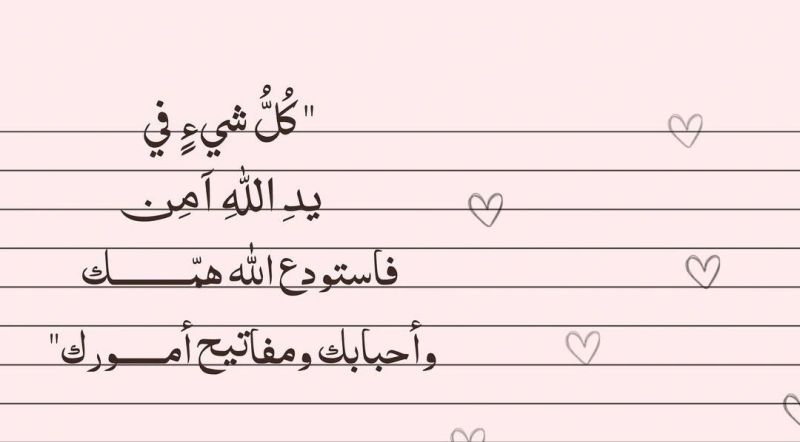 "كُلُّ شيءٍ في
يدِ اللهِ آمِن
فاستودع الله همّـــــــك
وأحبابك ومفاتيح أمـــورك"